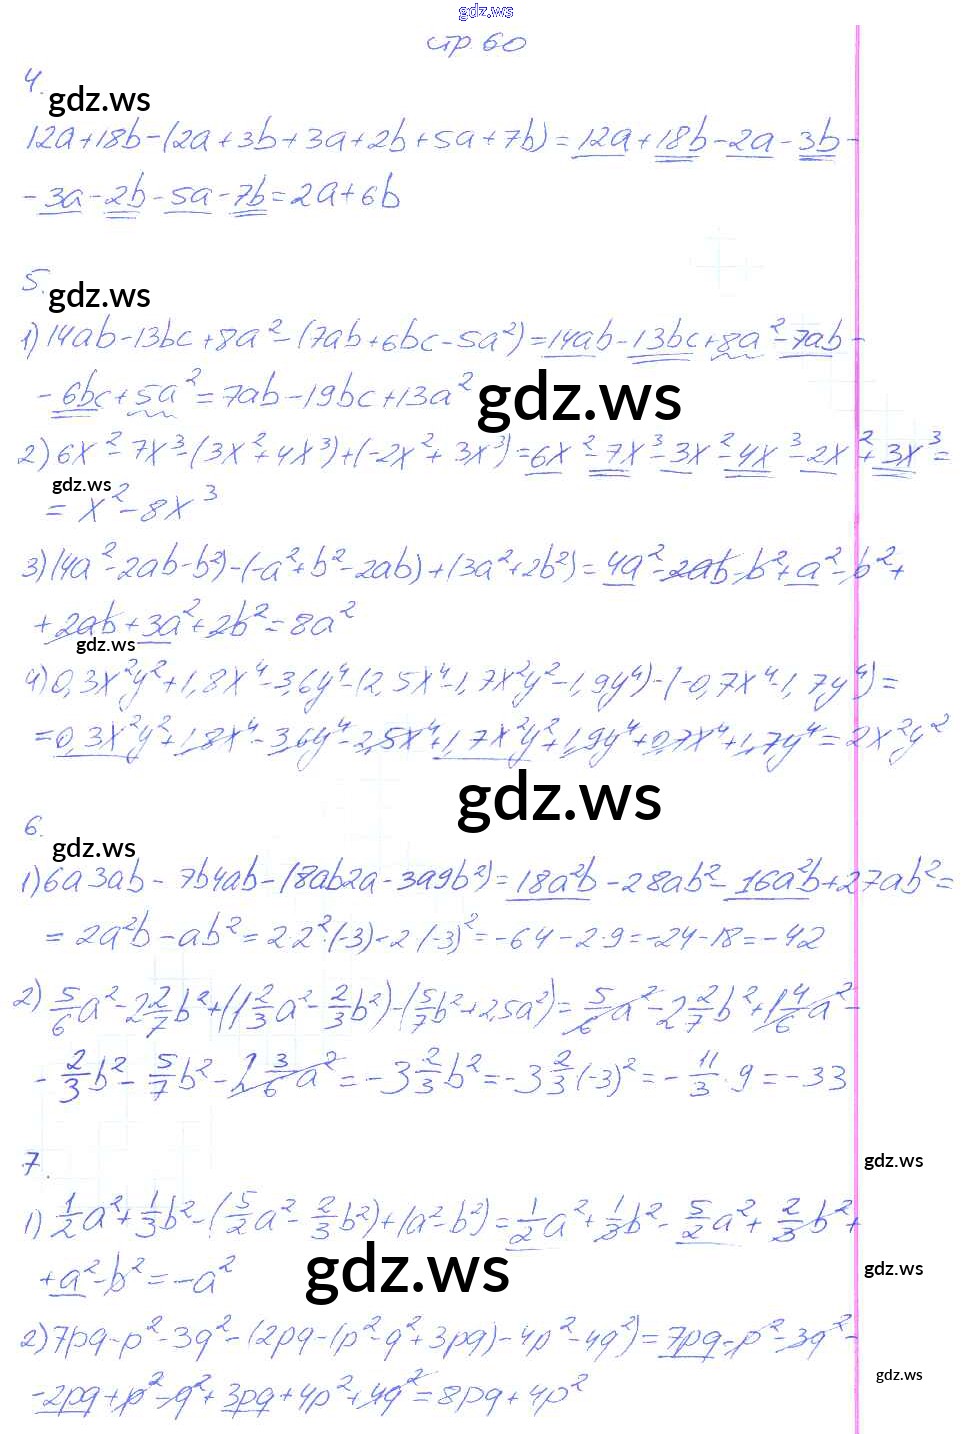 gdz.ws
стр 60
4.
gdz.ws
12a+18b-(2a+3b+3a+2b+5a+7b)=12a+18b-2a-3b-
-3a-2b-5a-7b=2a+6b
5.
gdz.ws
1) 14ab-13bc+8a²-(7ab+6bc-5a²)=14ab-13bc+8a²-7ab-
-6bc+5a²=7ab-19bc+13a²
gdz.ws
2) 6x²-7x³-(3x²+4x³)+(-2x²+3x³)=6x²-7x³-3x²-4x³-2x²+3x³=
gdz.ws
=x²-8x³
3) (4a²-2ab-b²)-(-a²+b²-2ab)+(3a²+2b²)=4a²-2ab-b²+a²-b²+
+2ab+3a²+2b²=8a²
gdz.ws
4) 0,3x²y²+1,8x⁴-3,6y⁴-(2,5x⁴-1,7x²y²-1,9y⁴)-(-0,7x⁴-1,7y⁴)=
=0,3x²y²+1,8x⁴-3,6y⁴-2,5x⁴+1,7x²y²+1,9y⁴+0,7x⁴+1,7y⁴=2x²y²
gdz.ws
6.
gdz.ws
1) 6a3ab-7b4ab-(8ab2a-3a9b²)=18a²b-28ab²-16a²b+27ab²=
=2a²b-ab²=2·2²·(-3)-2·(-3)²=-64-2·9=-24-18=-42
2) 5/6a²-2 2/7b²+(1 2/3a²-2/3b²)-(5/7b²+2,5a²)=5/6a²-2 2/7b²+1 4/6a²-
-2/3b²-5/7b²-2 3/6a²=-3 2/3b²=-3 2/3·(-3)²=-11/3·9=-33
7.
gdz.ws
1) 1/2a²+1/3b²-(5/2a²-2/3b²)+(a²-b²)=1/2a²+1/3b²-5/2a²+2/3b²+
+a²-b²=-a²
gdz.ws
gdz.ws
2) 7pq-p²-3q²-(2pq-(p²-q²+3pq)-4p²-4q²)=7pq-p²-3q²-
-2pq+p²-q²+3pq+4p²+4q²=8pq+4p²
gdz.ws